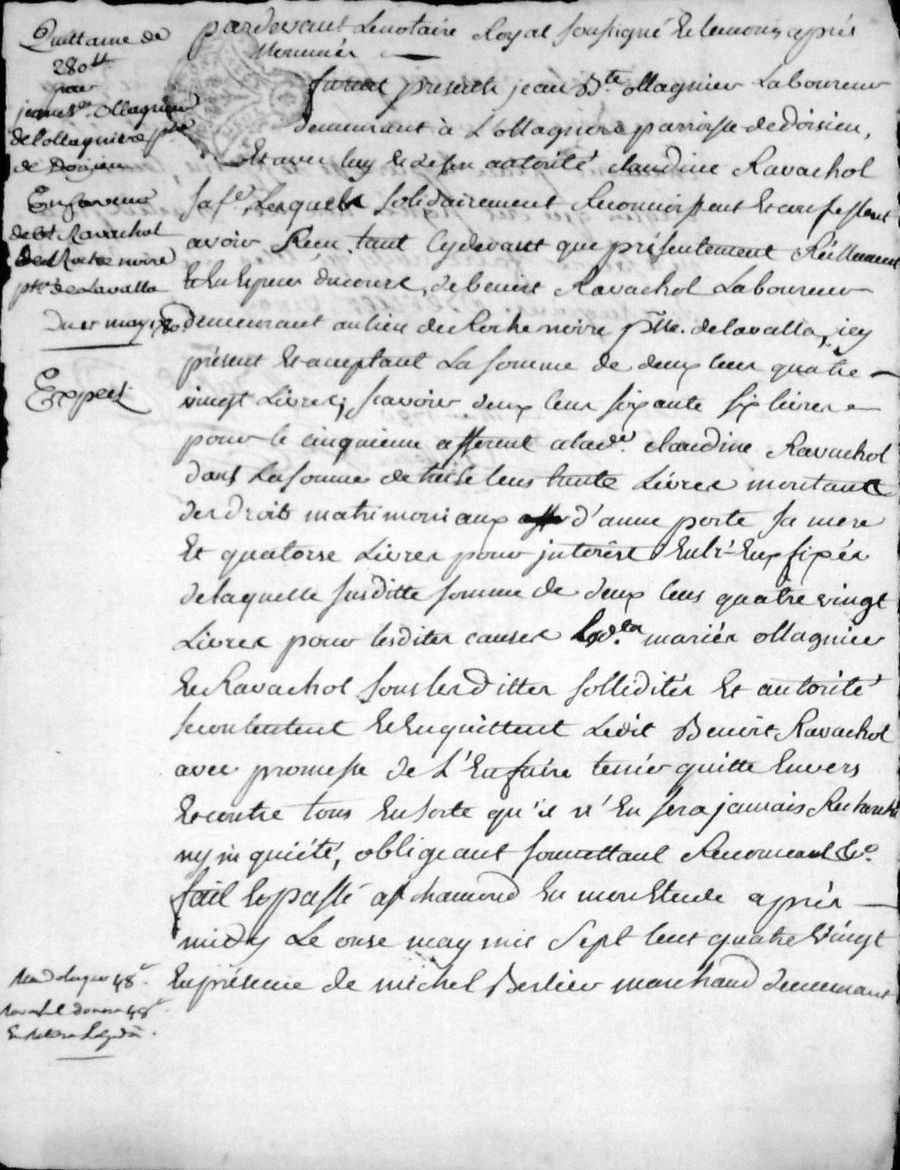 Quittance de
280 tt
pour
jean bte. Ollagnier
de lollagniere psse
de Doisieu
En faveur
de bt Ravachol
de Roche noire
psse. de Lavalla
du 11 may 1780
Expert
pardevant Le notaire Royal soussigné et temoins après
Nommés
furent presents jean Bte. Ollagnier Laboureur
demeurant à L'ollagniere parroisse de doisieu,
Et avec luy et de son autorité claudine Ravachol
sa fe. Lesquels solidairement Reconnoissent et confessent
avoir Receu tant cydevant que présentement Réellement
Et En Especes du cours, de benoit Ravachol Laboureur
demeurant au lieu de Roche noire psse. de lavalla, icy
présent Et acceptant La somme de deux cens quatre
vingt Livres; scavoir deux cens soixante six livres
pour le cinquieme afferent a lade. claudine Ravachol
dans La somme de treise cens trente Livres montant
des droits matrimoniaux d'anne porte sa mere
Et quatorse Livres pour interêst Entr'Eux fixés
de laquelle susditte somme de deux cens quatre vingt
Livres pour lesdites causes Lesd. mariés Ollagnier
et Ravachol sous lesdittes sollidités Et autorité
se contentent et En quittent Ledit Benoit Ravachol
avec promesse de L'En faire tenir quitte Envers
Et contre tous En sorte qu'il n'En sera jamais Recherché
ny in quiété, obligeant soumettant Renonceant &c.
fait Et passé a st chamond En mon Etude après
midy Le onse may mil sept cent quatre Vingt
En présence de michel Berlier marchand demeurant
48s.
Ravachol 48s